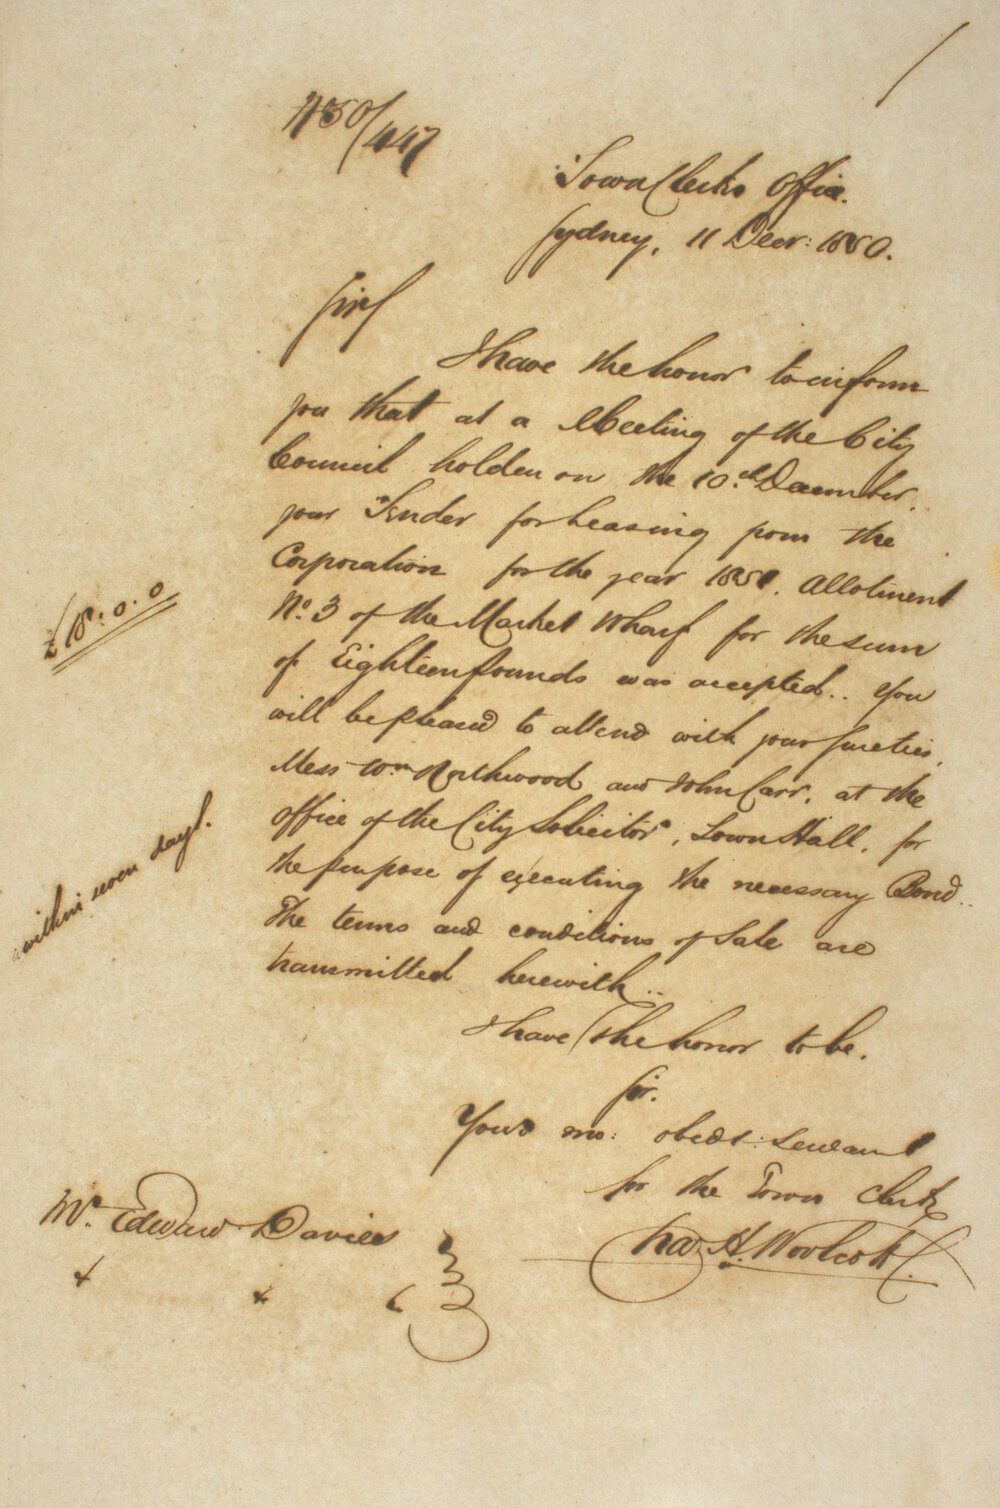 No 50/447
Town Clerks Office.
Sydney, 11 Decr: 1850.
Sir/
I have the honor to inform
you that at a Meeting of the City
Council holden on the 10.th December,
your Tender for Leasing from the
Corporation for the year 1851. Allotment
No. 3 of the Market Wharf for the sum
£18. 0. 0
of Eighteen Pounds was accepted.. You
will be pleased to attend with your sureties,
Mess Wm. Northwood and John Carr. at the
office of the City Solicitor, Town Hall, for
the purpose of executing the necessary Bond..
within seven days.
The terms and conditions of Sale are
transmitted herewith..
I have the honor to be.
Sir.
Your mo: obedt: servant
for the Town Clerk
Chas H. Woolcott
Mr. Edward Davies